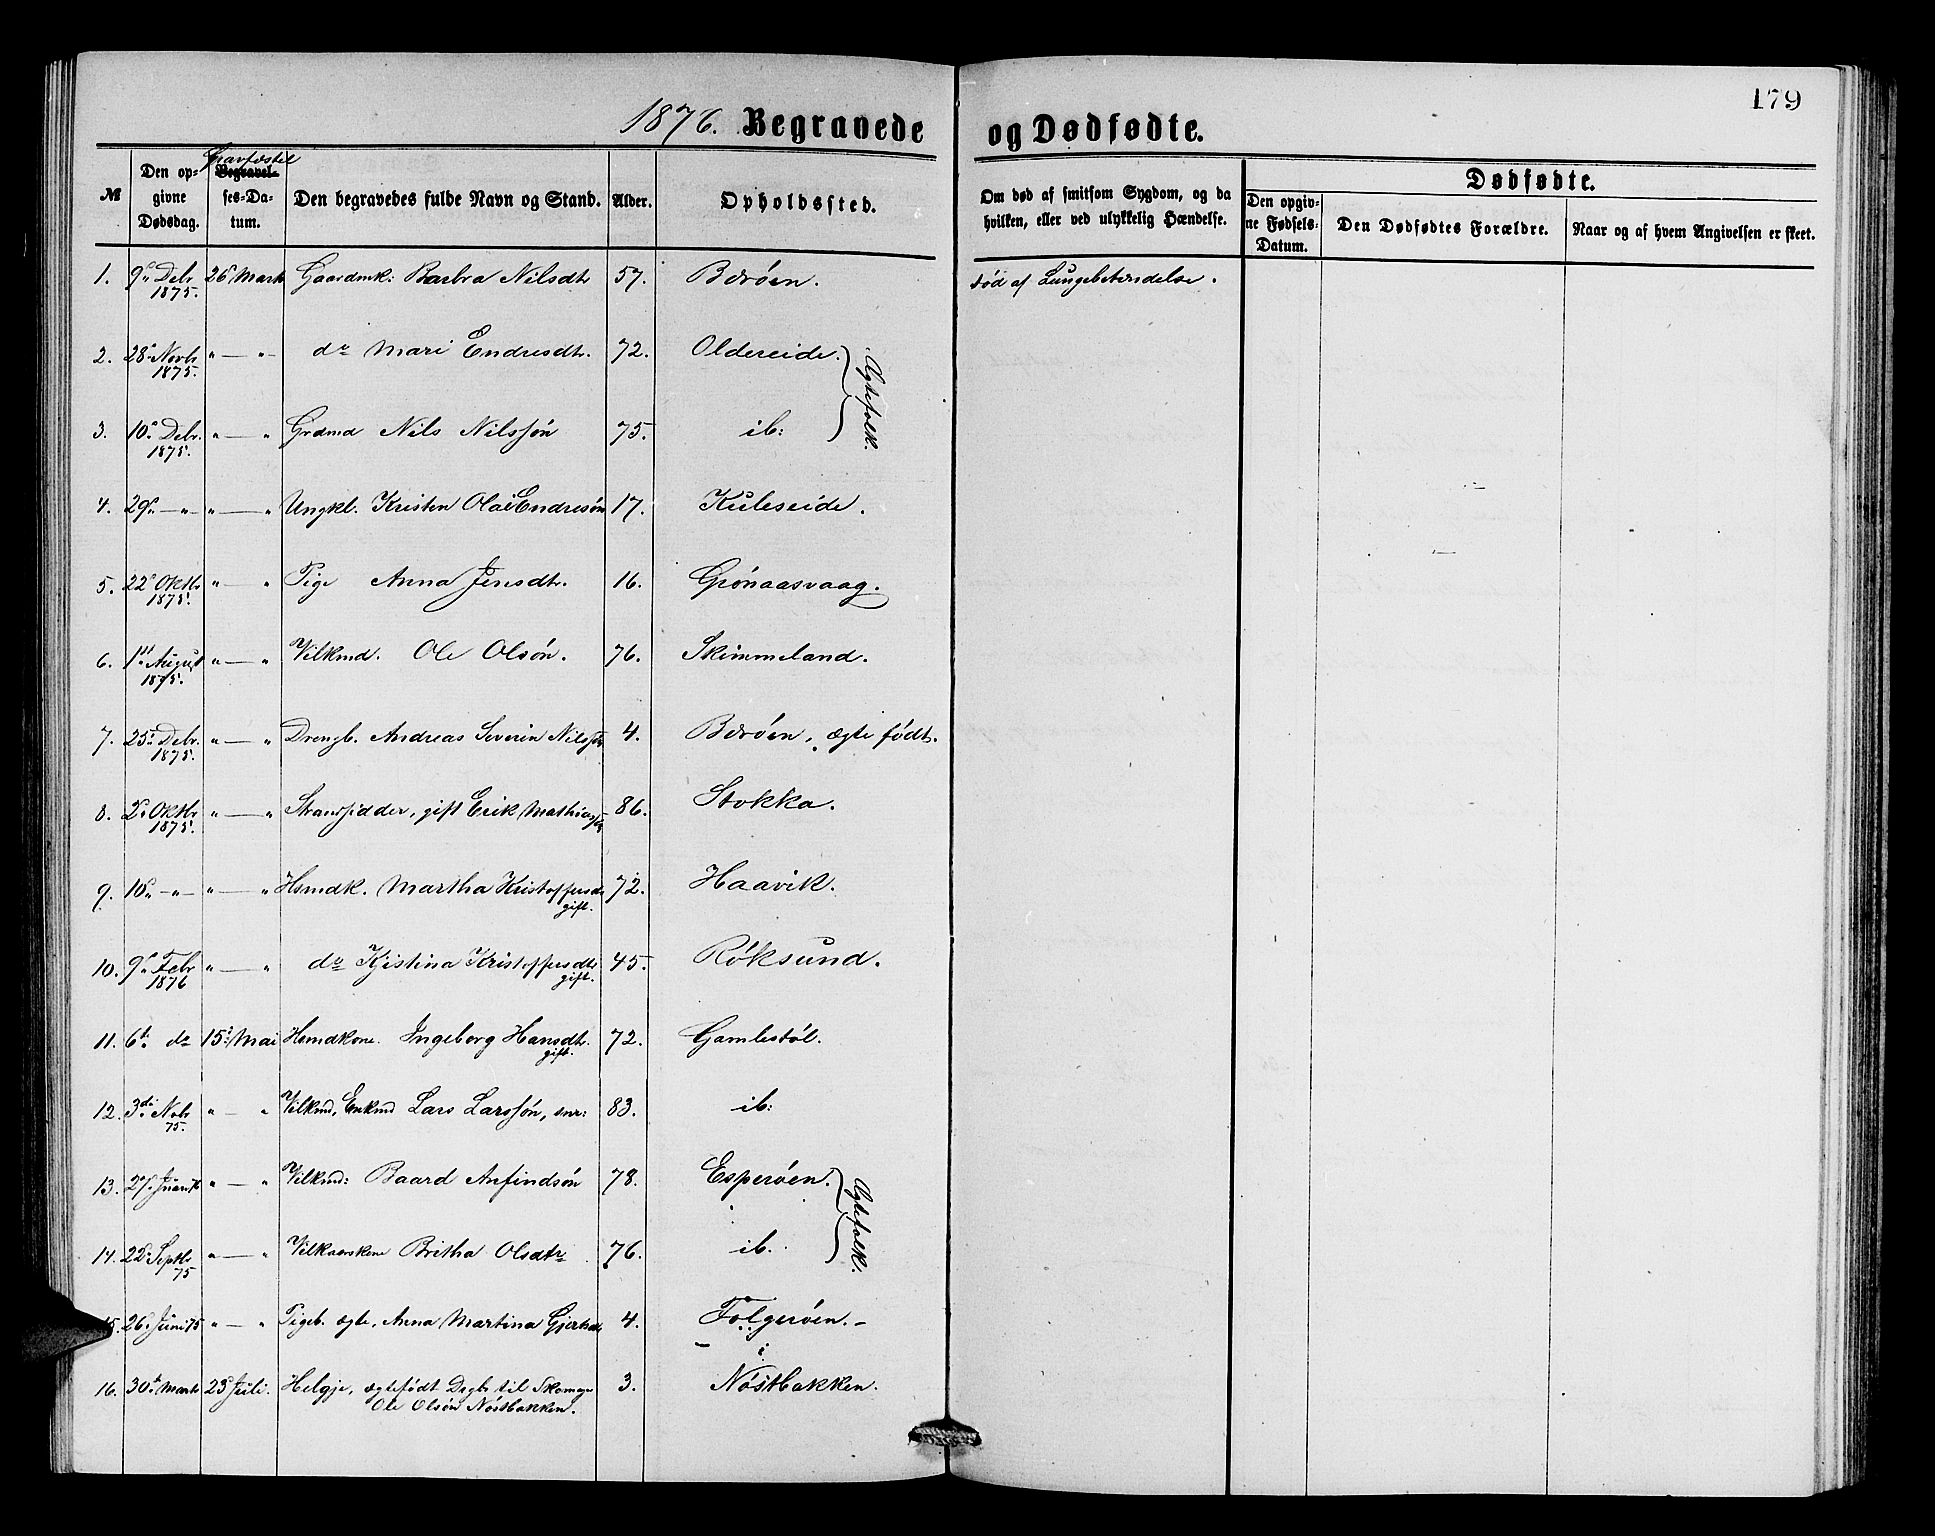 179
1876. Begravede og Dødfødte.
№
Den opgivne Dødsdag.
Begravelses-Datum.
Den begravedes fulde Navn og Stand.
Alder.
Opholdssted.
Om død af smitsom Sygdom, og da hvilken, eller ved ulykkelig Hændelse.
Dødfødte.
Den opgivne Fødsels-Datum.
Den Dødfødtes Forældre.
Naar og af hvem Angivelsen er skeet.
1. 9de Debr 1875. 26 Marts Gaardmk: Barbra Nilsdtr 57. Børøen. død af Lungebetændelse.
2. 28de Novbr 1875. " — " do Mari Endresdtr. 72. Oldereide.
Ægtefolk.
3. 10de Debr. 1875. " — " Grdmd Nils Nilssøn 75. ib:
4. 29de — " — " — " Ungkl. Kristen Olai Endresøn 17. Kuleseide.
5. 22de Oktbr 1875. " — " Pige Anna Jensdtr. 16. Grønaasvaag.
6. 1ste August 1875. " — " Vilkmd. Ole Olsøn. 76. Skimmeland.
7. 25de Debr. 1875. " — " Drengb. Andreas Severin Nilssøn 4. Børøen, ægte født.
8. 2de Oktbr 1875. " — " Strandsidder, gift Erik Mathiassøn 86. Stokka.
9. 10de — " — " — " Hsmdk. Martha Kristoffersdtr gift. 72. Haavik.
10. 9de Febr 1876 " — " do Kjistina Kristoffersdtr gift. 45. Røksund.
11. 6te do 15de Mai Hsmdkone. Ingeborg Hansdtr. gift. 72. Gamlestøl.
12. 3die Nobr 75. " — " Vilkmd, Enkmd Lars Larssøn, snr: 83. ib:
13. 27de " — " Vilkmd: Baard Anfindsøn 78. Esperøen.
Ægtefolk.
14. 22de Septbr 75 " — " Vilkaarskone Britha Olsdtr 76. ib.
15. 26de Juni 75 " — " Pigeb. ægte, Anna Martina 4. Folgerøen. –
16. 30te Marts 23de Juli. Helgje, ægtefødt Drgb. til Skomager Ole Olsøn Nøstbakken. 3. Nøstbakken.